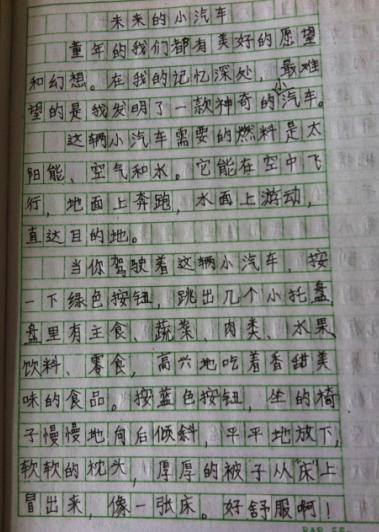 未来的小汽车
童年的我们都有美好的愿望
和幻想。在我的记忆深处，最难
望的是我发明了一款神奇的小汽车。
这辆小汽车需要的燃料是太
阳能、空气和水。它能在空中飞
行，地面上奔跑，水面上游动，
直达目的地。
当你驾驶着这辆小汽车，按
一下绿色按钮，跳出几个小托盘
盘里有主食、蔬菜、肉类、水果
饮料、零食，高兴地吃着香甜美
味的食品。按蓝色按钮，坐的椅
子慢慢地向后倾斜，平平地放下，
软软的枕头，厚厚的被子从“床”上
冒出来，像一张床。好舒服啊！